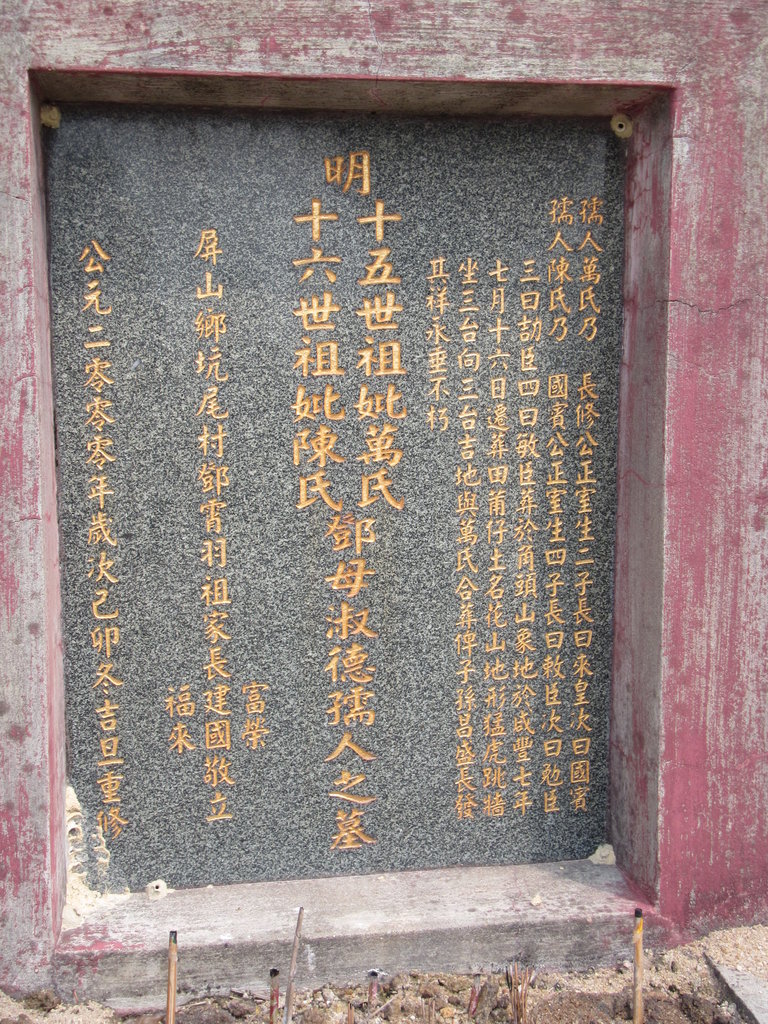 孺人萬氏乃 長修公正室生二子長曰來皇次曰國賓
孺人陳氏乃 國賓公正室生四子長曰敕臣次曰勉臣
三曰劼臣四曰敏臣葬於角頭山象地於咸豐七年
七月十六日遷葬田莆仔土名花山地形猛虎跳牆
坐三台向三台吉地與萬氏合葬俾子孫昌盛長發
其祥永垂不朽
明
十五世祖妣萬氏
十六世祖妣陳氏
鄧母淑德孺人之墓
屏山鄉坑尾村鄧霄羽祖家長
富榮
建國
福來
敬立
公元二零零零年歲次己卯冬吉旦重修